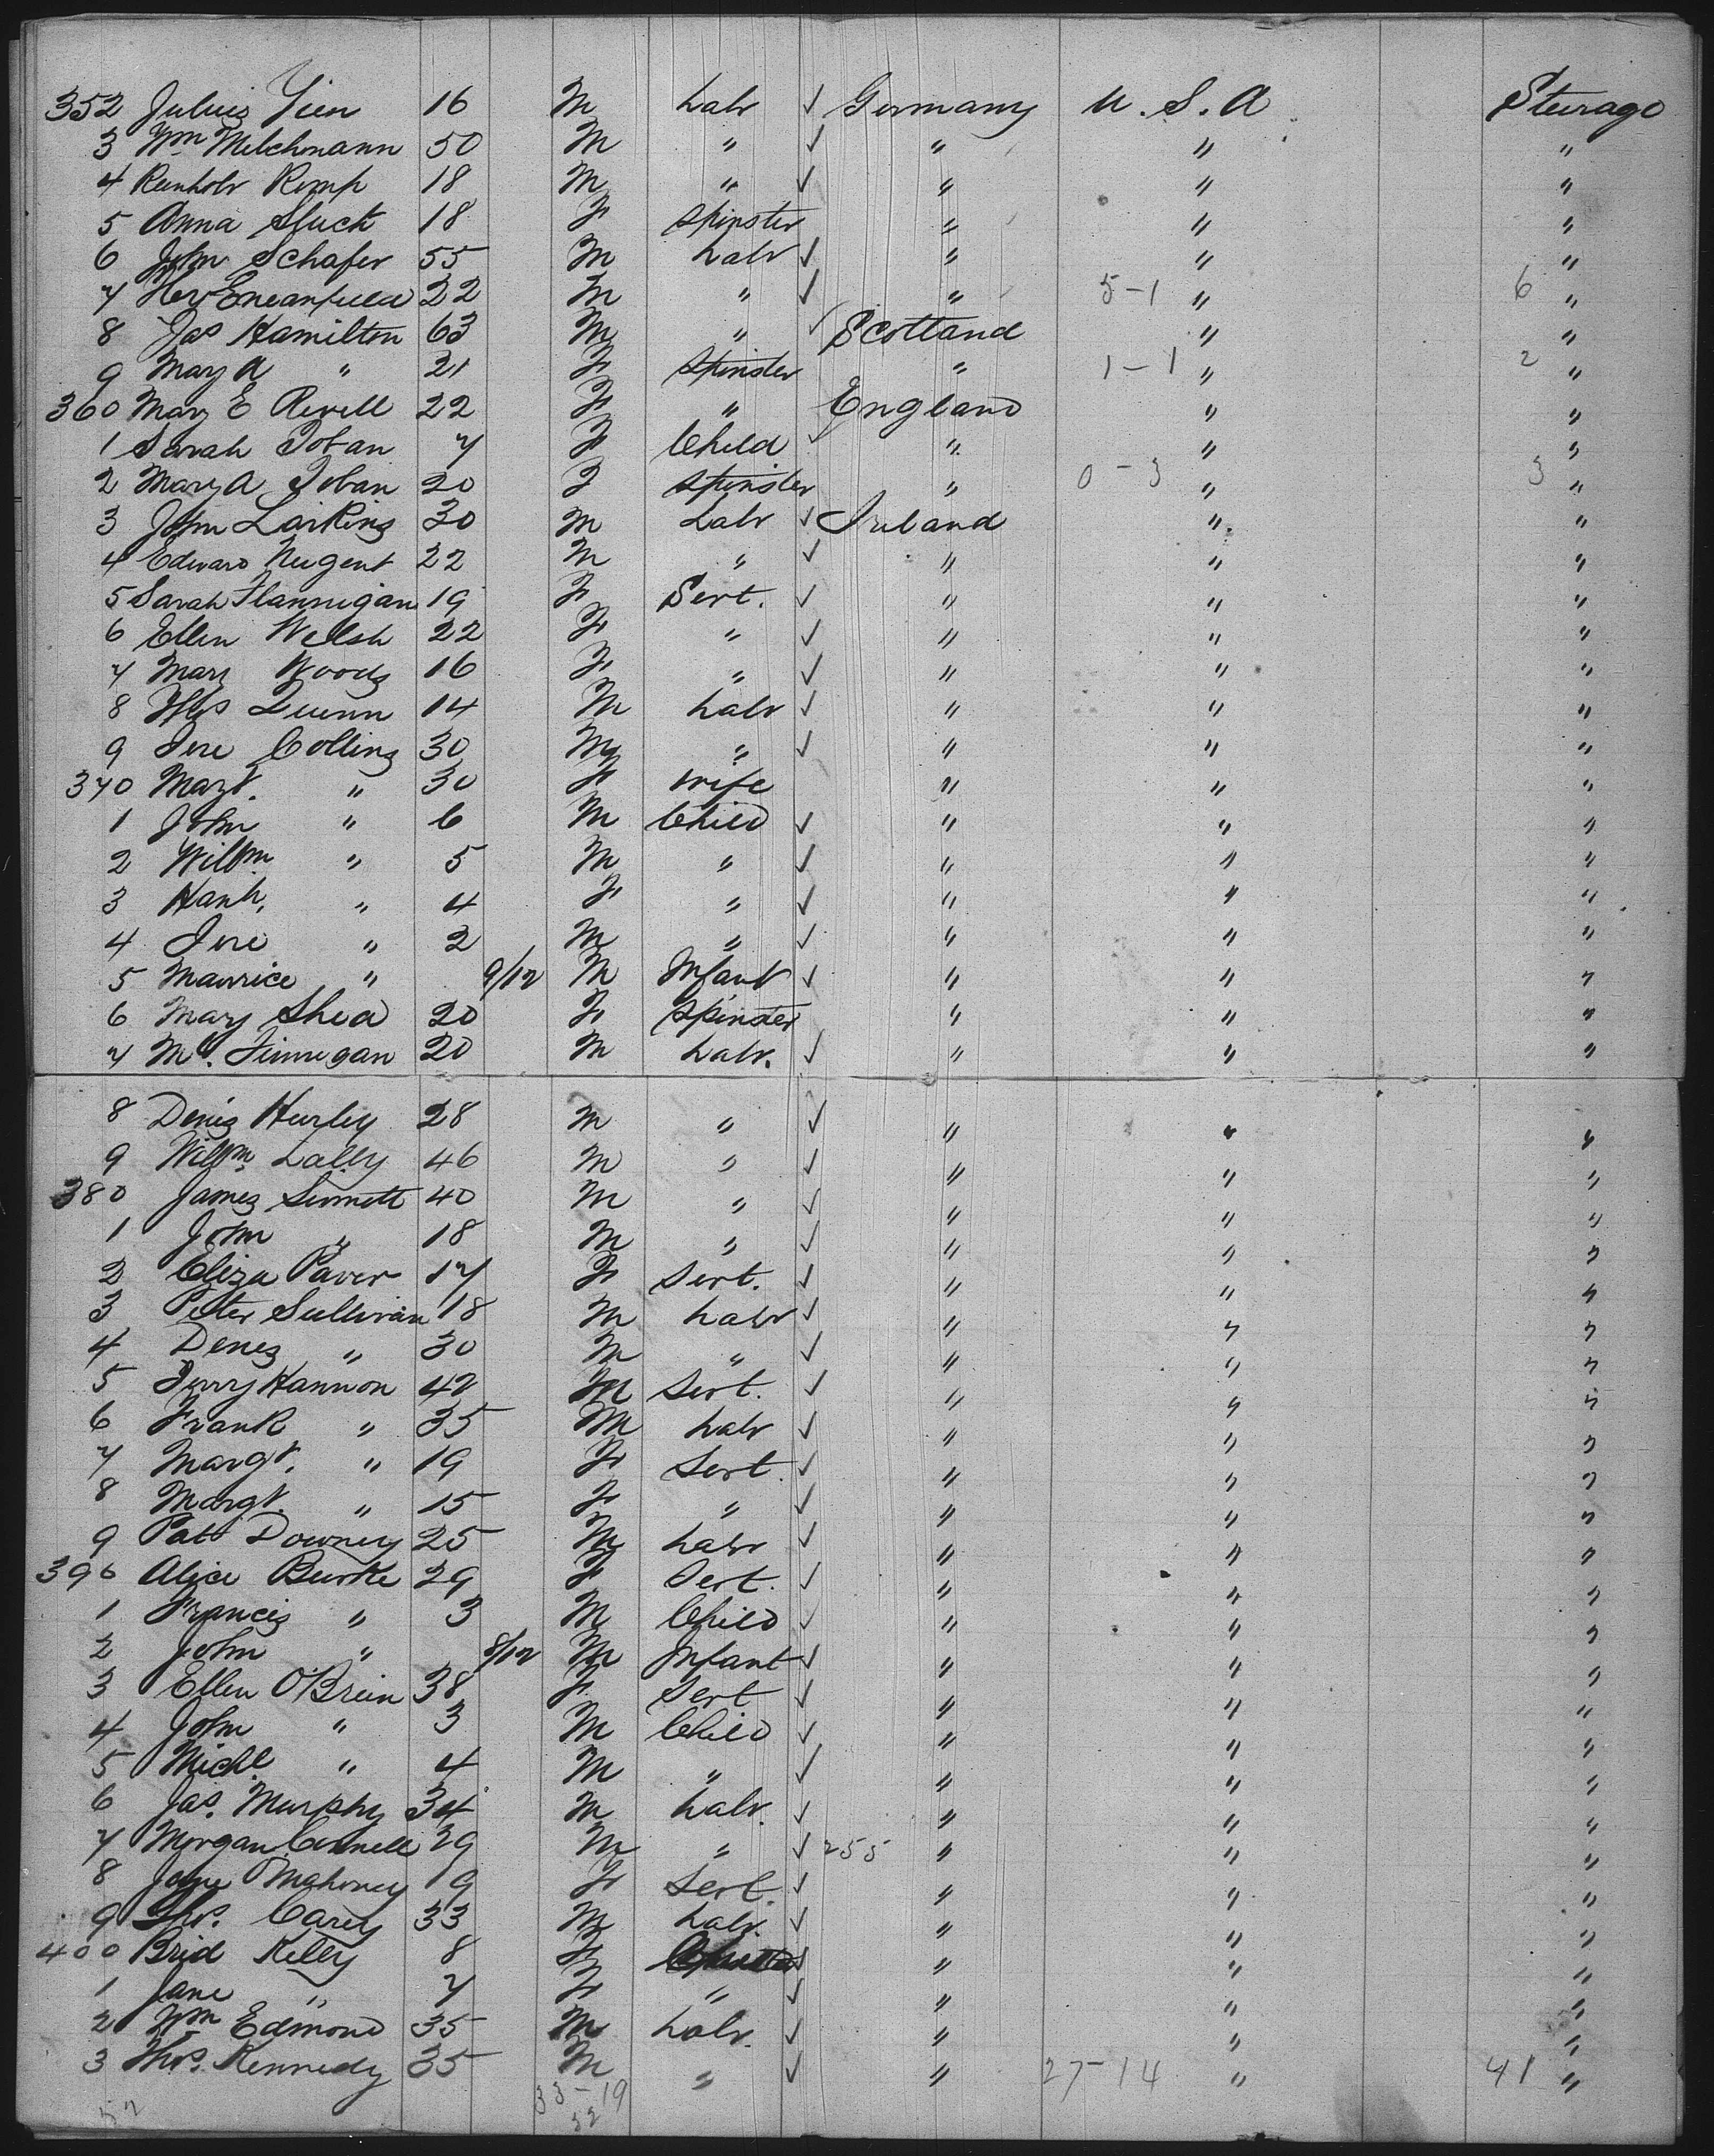 352 Julius Yien 16 M Labr ✓ Germany U.S.A Steerage
3 Wm Melchmann 50 M " ✓ " " "
4 Reinholr Kemp 18 M " ✓ " " "
5 Anna Sluck 18 F Spinster " " "
6 John Schafer 55 M Labr ✓ " " "
7 Hey 22 M " ✓ " 5-1 " 6 "
8 Jas Hamilton 63 M " ✓ Scotland " "
9 Mary A " 21 F Spinster " 1-1 " 2 "
360 Mary E Revell 22 F " England " "
1 Sarah Toban 7 F Child " " "
2 Mary A Toban 20 F Spinster " 0-3 " 3 "
3 John Larkins 30 M Labr ✓ Ireland " "
4 Edward Nugent 22 M " ✓ " " "
5 Sarah Flannigan 19 F Sert. ✓ " " "
6 Ellen Welsh 22 F " ✓ " " "
7 Mary Woods 16 F " ✓ " " "
8 Ths Quinn 14 M Labr ✓ " " "
9 Jere Collins 30 M " ✓ " " "
370 Mart. " 30 F wife " " "
1 John " 6 M Child ✓ " " "
2 Willm " 5 M " ✓ " " "
3 Hanh. " 4 F " ✓ " " "
4 Jere " 2 M " ✓ " " "
5 Maurice " 9/12 M Infant ✓ " " "
6 Mary Shea 20 F Spinster " " "
7 Ml. Finnegan 20 M Labr. ✓ " " "
8 Denis Hurley 28 M " ✓ " " "
9 Willm Lally 46 M " ✓ " " "
380 James Sinnott 40 M " ✓ " " "
1 John " 18 M " ✓ " " "
2 Eliza Paver 17 F Sert. ✓ " " "
3 Peter Sullivan 18 M Labr ✓ " " "
4 Denis " 30 M " ✓ " " "
5 Jerry Hannon 42 M Sert. ✓ " " "
6 Frank " 35 M Labr ✓ " " "
7 Margt. " 19 F Sert. ✓ " " "
8 Margt. " 15 F " ✓ " " "
9 Patt Downey 25 M Labr ✓ " " "
390 Alice Burke 29 F Sert. ✓ " " "
1 Francis " 3 M Child ✓ " " "
2 John " 8/12 M Infant ✓ " " "
3 Ellen O'Brien 38 F Sert ✓ " " "
4 John " 3 M Child ✓ " " "
5 Michl " 4 M " ✓ " " "
6 Jas. Murphy 34 M Labr. ✓ " " "
7 Morgan Connell 29 M " ✓ 255 " " "
8 Jane Mahoney 19 F Sert. ✓ " " "
9 Thos. Carey 33 M Labr ✓ " " "
400 Brid Kelly 8 F ✓ " " "
1 Jane " 7 F " ✓ " " "
2 Wm Edmond 35 M Labr. ✓ " " "
3 Thos. Kennedy 35 M " ✓ " 27-14 " 41 "
33-19
52 52